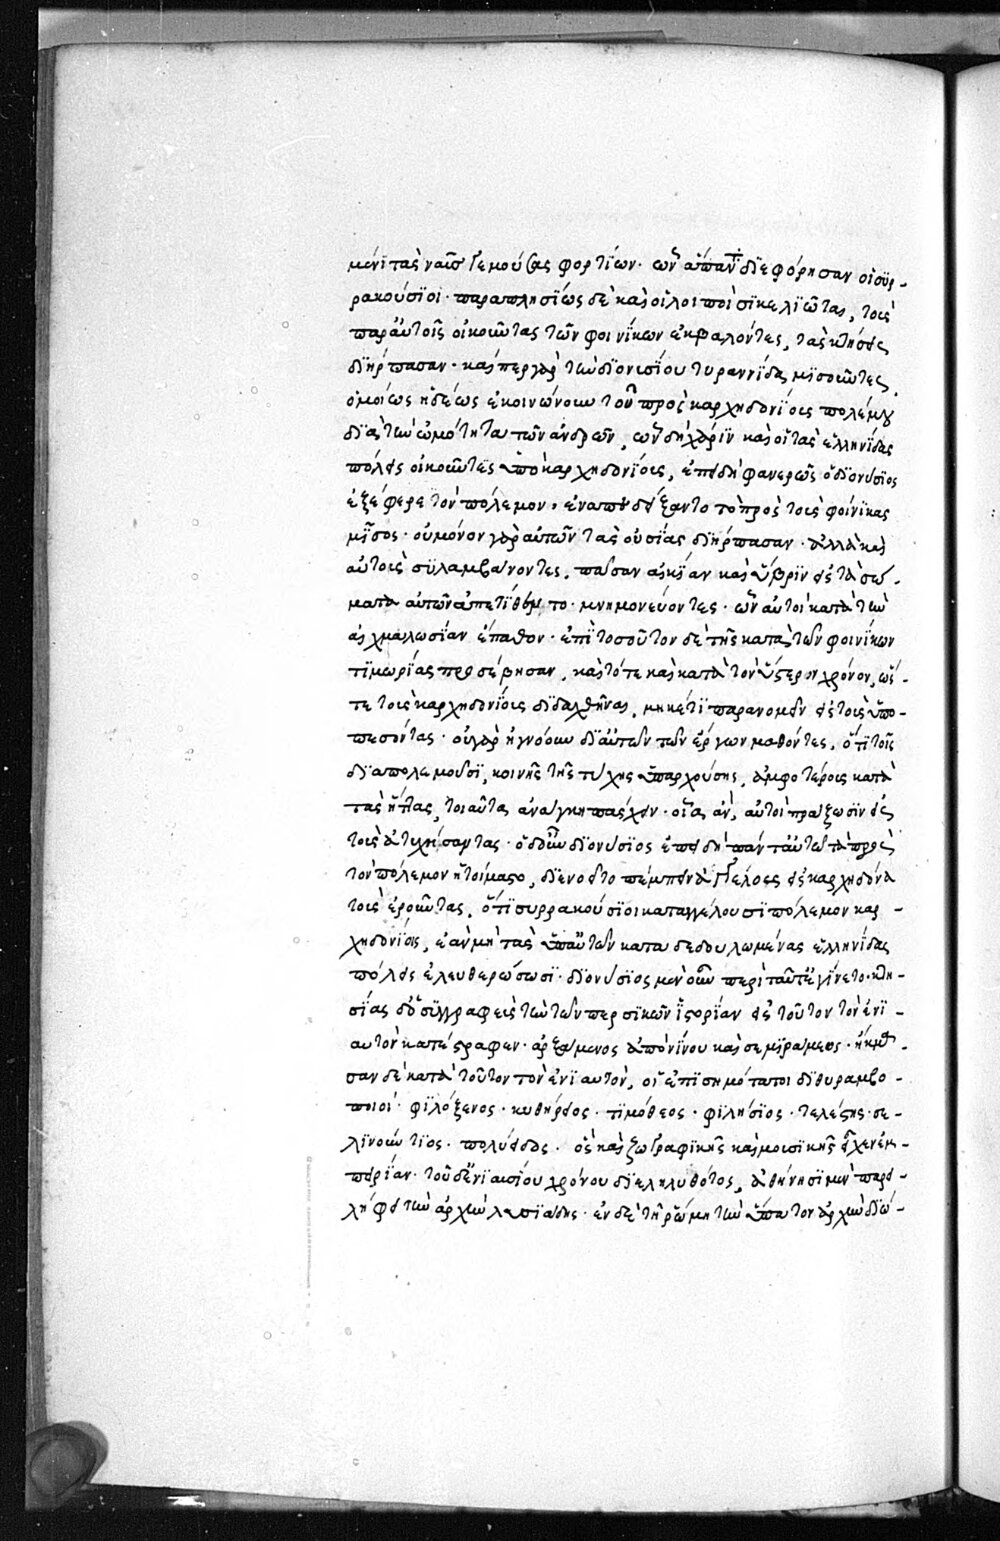 μένι τὰς ναῦς γεμούσας φορτίων· ὧν ἅπαντα διεφόρησαν οἱ συρ-
ρακούσιοι· παραπλησίως δὲ καὶ οἱ λοιποὶ σικελιῶται, τοὺς
παρ' αὐτοῖς οἰκοῦντας τῶν φοινίκων ἐκβαλόντες, τὰς κτήσεις
διήρπασαν· καίπερ γὰρ τὴν διονυσίου τυραννίδα μισοῦντες,
ὁμοίως ἡδέως ἐκοινώνουν τοῦ πρὸς καρχηδονίους πολέμου
διὰ τὴν ὠμότητα τῶν ἀνδρῶν, ὧν δὴ χάριν καὶ οἱ τὰς ἑλληνίδας
πόλεις οἰκοῦντες ὑπὸ καρχηδονίοις, ἐπειδὴ φανερῶς ὁ διονύσιος
ἐξέφερε τὸν πόλεμον, ἐναπεδείξαντο τὸ πρὸς τοὺς φοίνικας
μῖσος· οὐ μόνον γὰρ αὐτῶν τὰς οὐσίας διήρπασαν· ἀλλὰ καὶ
αὐτοὺς συλαμβάνοντες, πᾶσαν αἰκίαν καὶ ὕβριν εἰς τὰ σώ-
ματα αὐτῶν ἀπετίθεντο· μνημονεύοντες· ὧν αὐτοὶ κατὰ τὴν
αἰχμαλωσίαν ἔπαθον· ἐπὶ τοσοῦτον δὲ τῆς κατὰ τῶν φοινίκων
τιμωρίας προσέβησαν, καὶ τότε καὶ κατὰ τὸν ὕστερον χρόνον, ὥσ-
τε τοὺς καρχηδονίους διδαχθῆναι, μηκέτι παρανομεῖν εἰς τοὺς ὑπο-
πεσόντας· οὐ γὰρ ἠγνόουν δι' αὐτῶν τῶν ἔργων μαθόντες, ὅτι τοῖς
διαπολεμοῦσι, κοινῆς τῆς τύχης ὑπαρχούσης, ἀμφοτέροις κατὰ
τὰς ἥττας, τοιαῦτα ἀνάγκη πάσχειν· οἷα ἂν, αὐτοὶ πράξωσιν εἰς
τοὺς ἀτυχήσαντας· ὁ δ' οὖν διονύσιος ἐπειδὴ πάντ' αὐτῶ τὰ πρὸς
τὸν πόλεμον ἡτοίμαστο, διενοεῖτο πέμπειν ἀγγέλους εἰς καρχηδόνα
τοὺς ἐροῦντας, ὅτι συρρακούσιοι καταγγέλουσι πόλεμον καρ-
χηδονίοις, ἐὰν μὴ τὰς ὑπ' αὐτῶν καταδεδουλωμένας ἑλληνίδας
πόλεις ἐλευθερώσωσι· διονύσιος μὲν οὖν περὶ ταῦτ' ἐγίνετο· κτη-
σίας δ' ὁ συγγραφεὺς τὴν τῶν περσικῶν ἱστορίαν εἰς τοῦτον τὸν ἐνι-
αυτὸν κατέστραφεν· ἀρξάμενος ἀπὸ νίνου καὶ σεμιράμεως· ἤκμα-
σαν δὲ κατὰ τοῦτον τὸν ἐνιαυτὸν, οἱ ἐπισημότατοι διθυραμβο-
ποιοί· φιλόξενος· κυθήριος· τιμόθεος· φιλήσιος· τελέστης· σε-
λινούντιος· πολύειδος· ὃς καὶ ζωγραφικῆς καὶ μουσικῆς εἶχεν ἐμ-
πειρίαν· τοῦ δ' ἐνιαυσίου χρόνου διεληλυθότος, ἀθήνησι μὲν παρεί-
ληφε τὴν ἀρχὴν λυσιάδης· ἐν δὲ τῆ ῥώμη τὴν ὕπατον ἀρχὴν διώ-